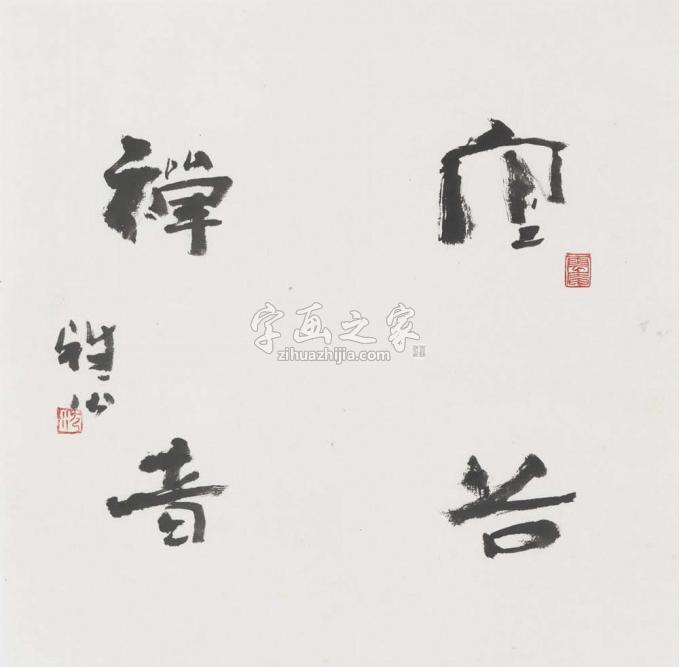 空谷
禅音
字画之家
zihuazhijia.com